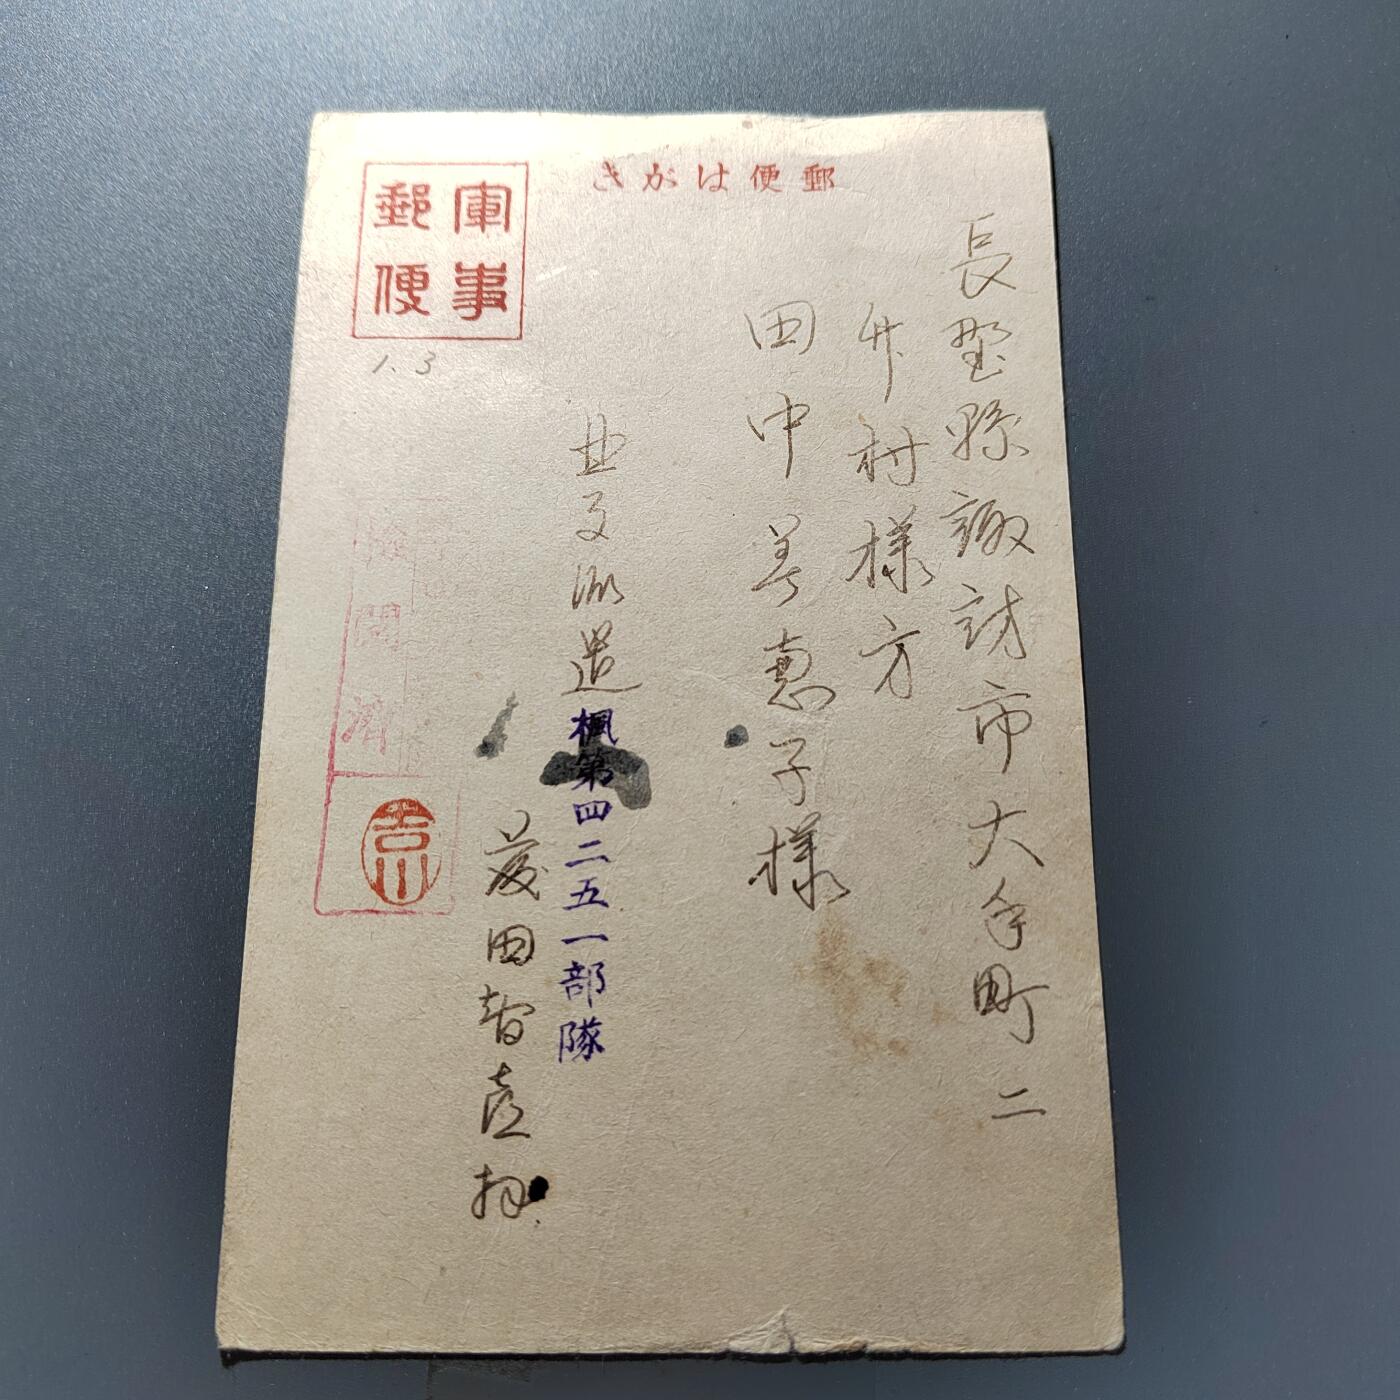 郵便はがき
軍事
郵便
1.3
長野縣諏訪市大手町二
竹村様方
田中美恵子様
中支派遣楓第四二五一部隊
藤田
検閲済
吉川